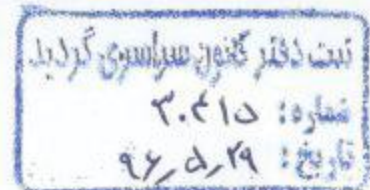 ثبت دفتر کانون سراسری گردید.
شماره: ۳۰۴۱۵
تاریخ: ۹۶٫۵٫۲۹